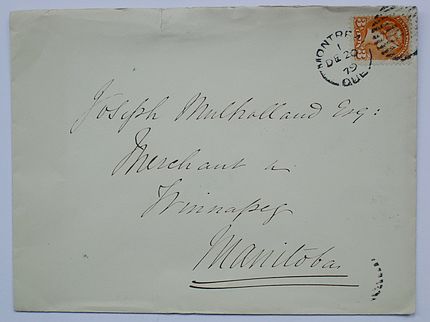 MONTREAL
1
DE 20
79
QUE
Joseph Mulholland Esq:
Merchant &
Winnapeg
Manitoba